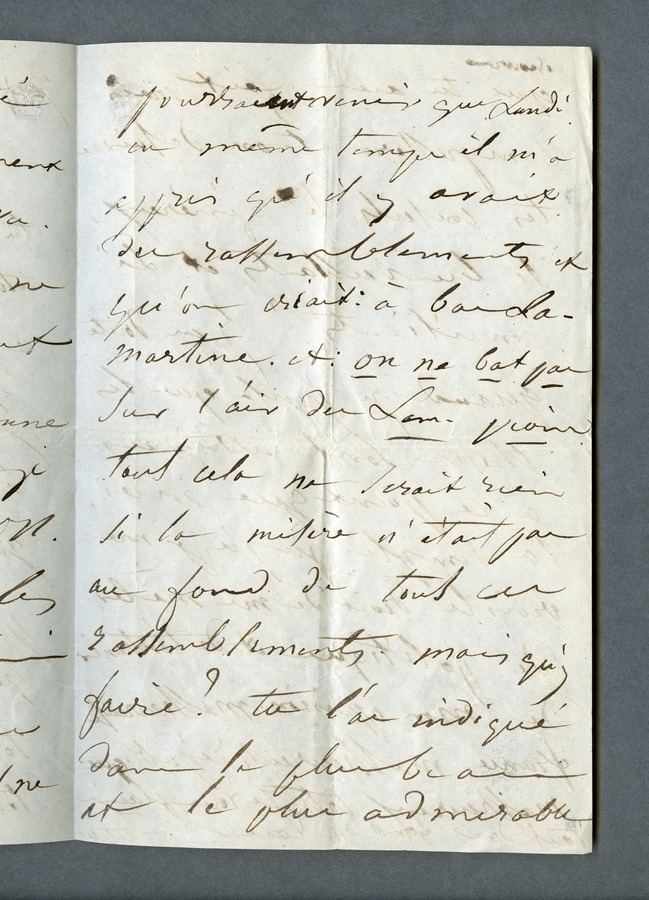 é
rent
va.
ne
nt
nne
on.
les
ne
pourraient venir que Lundi.
en même temps il m'a
appris qu'il y avait
des rassemblements et
qu'on criait: à bas La-
martine. et: on ne bat pas
sur l'air des Lam- pions
tout cela ne serait rien
si la misère n'était pas
au fond de tous ces
rassemblements. mais qu'y
faire? tu l'as indiqué
dans le plus beau
et le plus admirable